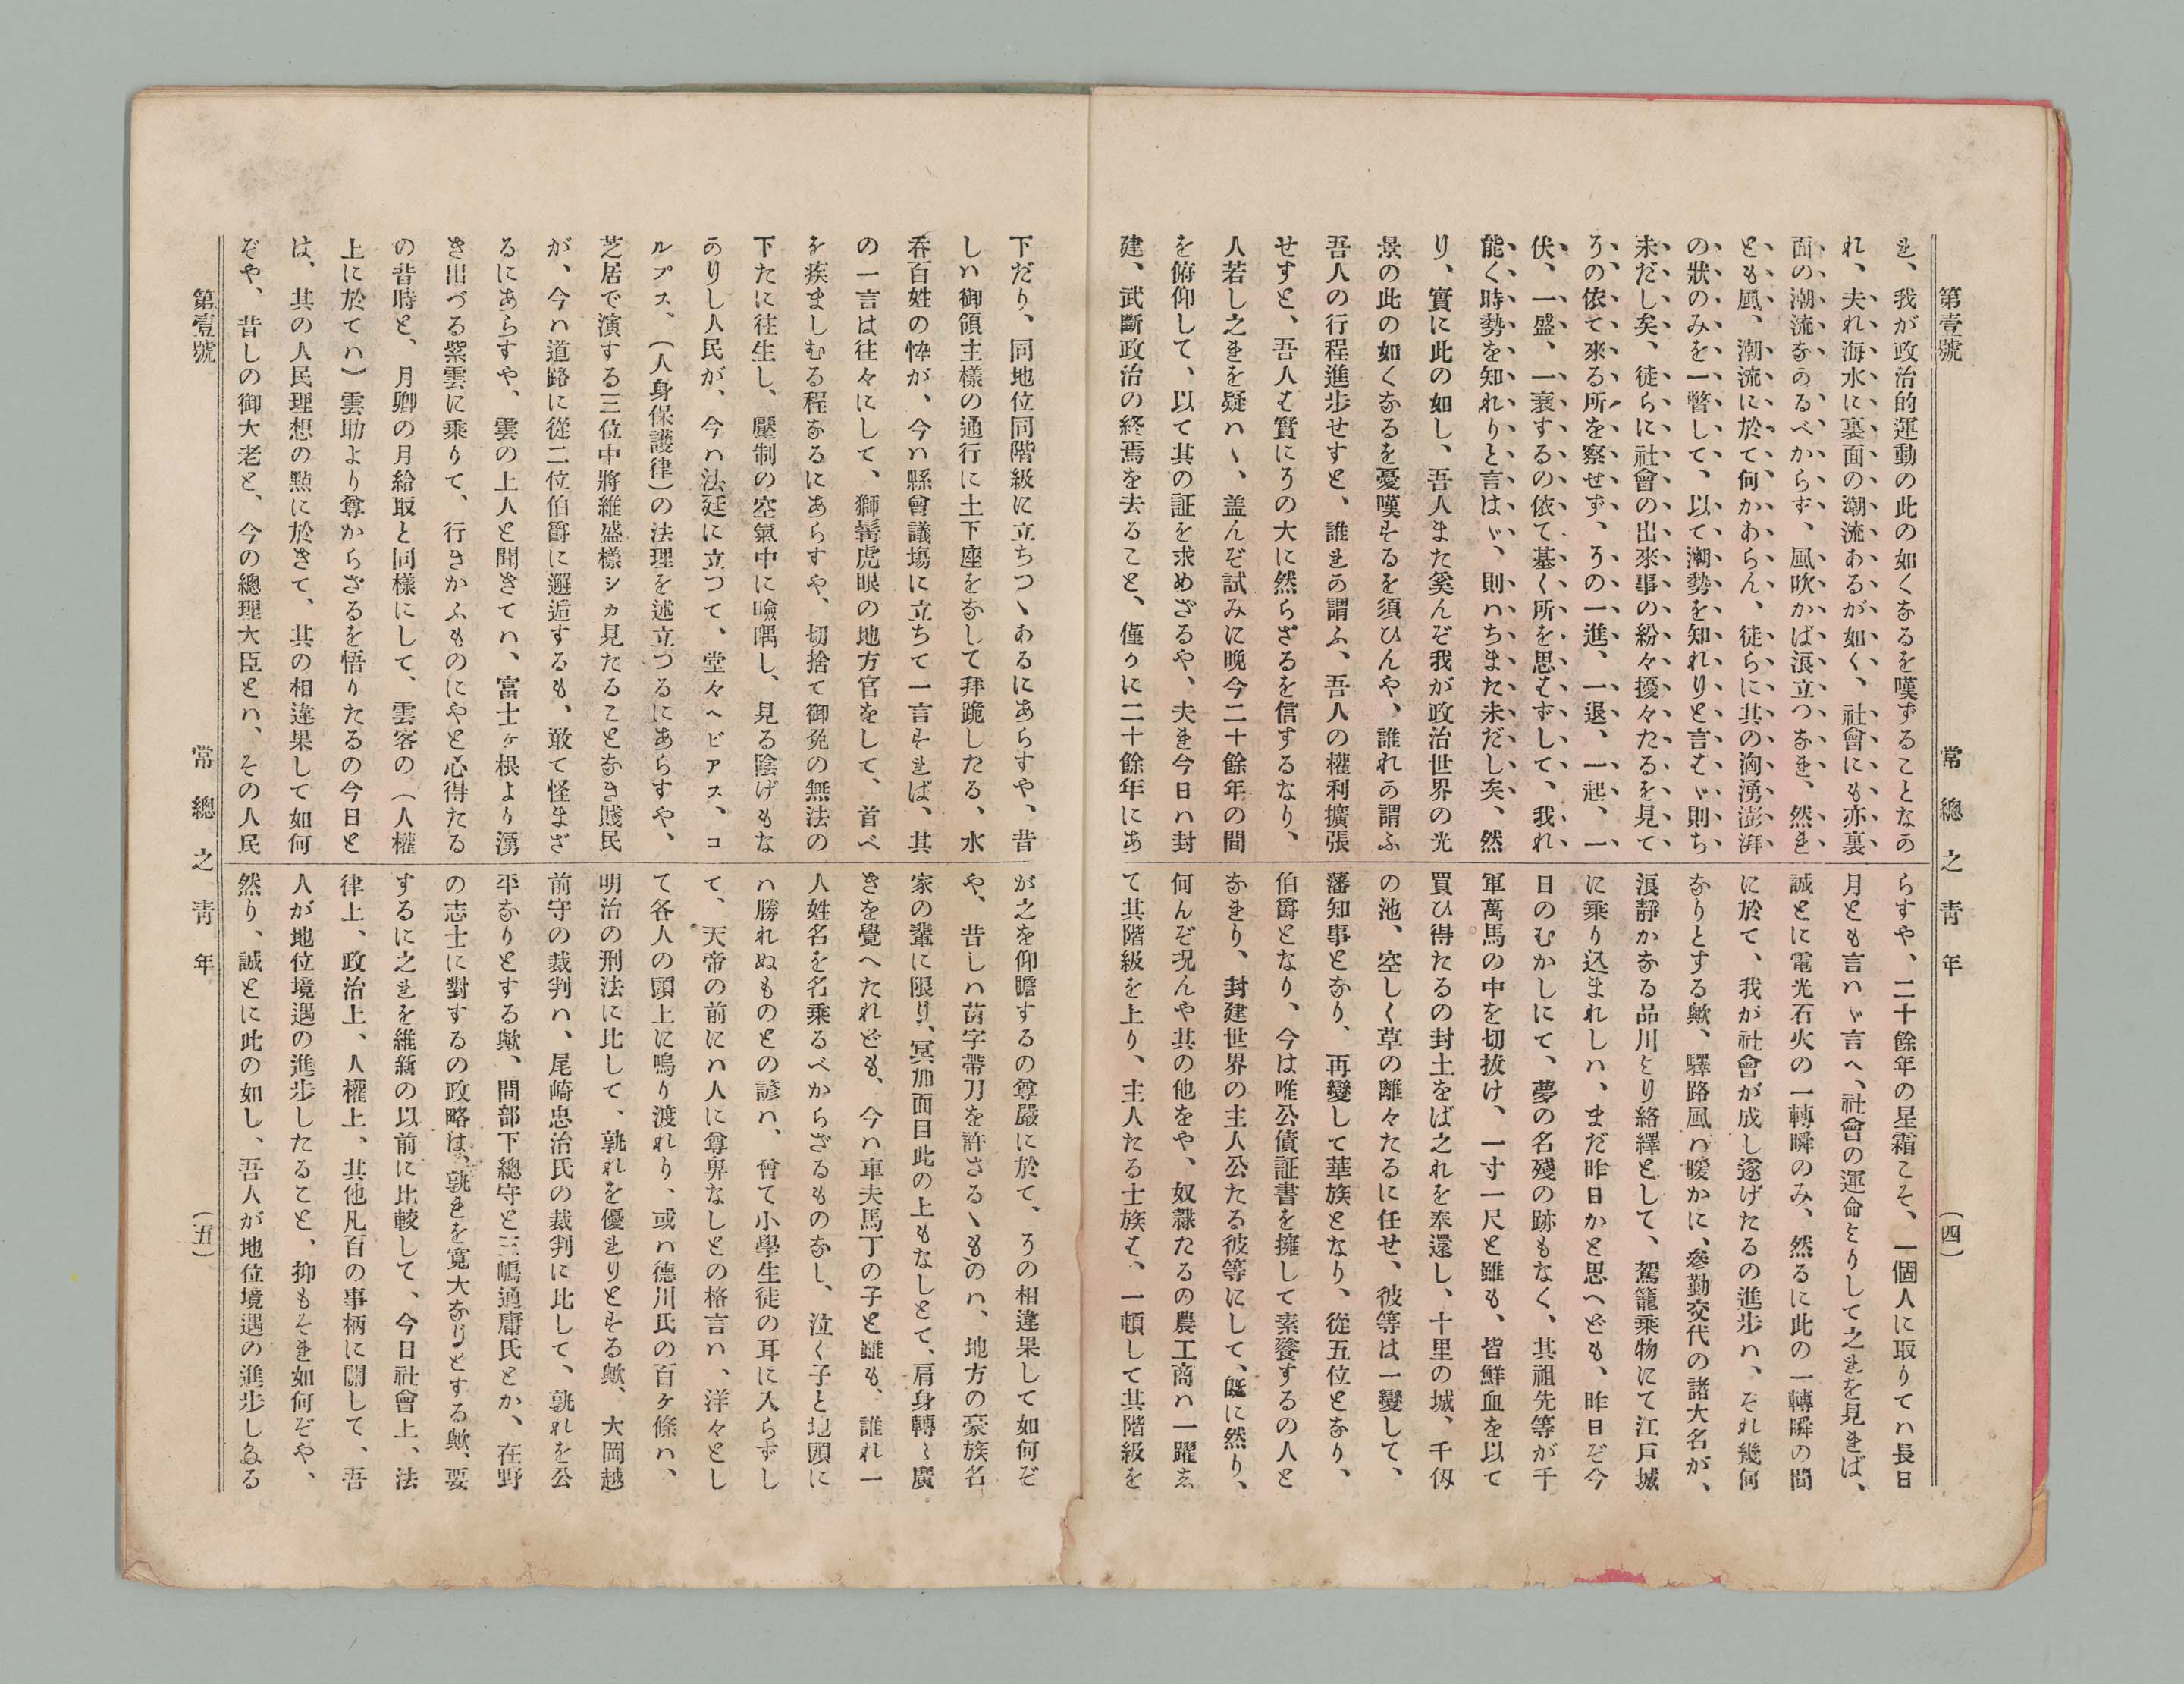 第壹號
常總之靑年
(四)
れ、我が政治的運動の此の如くなるを嘆ずることなか
れ、夫れ海水に裏面の潮流あるが如く、社會にも亦裏
面の潮流なかるべからす、風吹かば浪立つなれ、然れ
とも風、潮流に於て何かあらん、徒らに其の洶湧澎湃
の狀のみを一瞥して、以て潮勢を知れりと言はゞ則ち
未だし矣、徒らに社會の出來事の紛々擾々たるを見て
その依て來る所を察せず、その一進、一退、一起、一
伏、一盛、一衰するの依て基く所を思はずして、我れ
能く時勢を知れりと言はゞ、則ハちまた未だし矣、然
り、實に此の如し、吾人また奚んぞ我が政治世界の光
景の此の如くなるを憂嘆するを須ひんや、誰れか謂ふ
吾人の行程進歩せすと、誰れか謂ふ、吾人の權利擴張
せすと、吾人は實にその大に然らざるを信するなり、
人若し之れを疑ハヽ、盖んぞ試みに晩今二十餘年の間
を俯仰して、以て其の証を求めざるや、夫れ今日ハ封
建、武斷政治の終焉を去ること、僅かに二十餘年にあ
らすや、二十餘年の星霜こそ、一個人に取りてハ長日
月とも言ハゞ言へ、社會の運命よりして之れを見れば、
誠とに電光石火の一轉瞬のみ、然るに此の一轉瞬の間
に於て、我が社會が成し遂げたるの進歩ハ、それ幾何
なりとする歟、驛路風ハ暖かに、參勤交代の諸大名が、
浪靜かなる品川より絡繹として、駕籠乘物にて江戸城
に乘り込まれしハ、まだ昨日かと思へども、昨日ぞ今
日のむかしにて、夢の名殘の跡もなく、其祖先等が千
軍萬馬の中を切抜け、一寸一尺と雖も、皆鮮血を以て
買ひ得たるの封土をば之れを奉還し、十里の城、千仭
の池、空しく草の離々たるに任せ、彼等は一變して、
藩知事となり、再變して華族となり、從五位となり、
伯爵となり、今は唯公債証書を擁して素餐するの人と
なれり、封建世界の主人公たる彼等にして、既に然り、
何んぞ況んや其の他をや、奴隷たるの農工商ハ一躍ゑ
て其階級を上り、主人たる士族は、一頓して其階級を
下だり、同地位同階級に立ちつヽあるにあらすや、昔
しハ御領主樣の通行に土下座をなして拜跪したる、水
呑百姓の悴が、今ハ縣會議塲に立ちて一言すれば、其
の一言は往々にして、獅髯虎眼の地方官をして、首べ
を疾ましむる程なるにあらすや、切捨て御免の無法の
下たに往生し、壓制の空氣中に噞喁し、見る陰げもな
かりし人民が、今ハ法廷に立つて、堂々ヘビアス、コ
ルプス、(人身保護律)の法理を述立つるにあらすや、
芝居で演する三位中將維盛樣シカ見たることなき賤民
が、今ハ道路に從二位伯爵に邂逅するも、敢て怪まざ
るにあらすや、雲の上人と聞きてハ、富士ヶ根より湧
き出づる紫雲に乘りて、行きかふものにやと心得たる
の昔時と、月卿の月給取と同樣にして、雲客の(人權
上に於てハ)雲助より尊からざるを悟りたるの今日と
は、其の人民理想の㸃に於きて、其の相違果して如何
ぞや、昔しの御大老と、今の總理大臣とハ、その人民
が之を仰瞻するの尊嚴に於て、その相違果して如何ぞ
や、昔しハ苗字帶刀を許さるヽものハ、地方の豪族名
家の輩に限り、冥加面目此の上もなしとて、肩身轉〻廣
きを覺へたれども、今ハ車夫馬丁の子と雖も、誰れ一
人姓名を名乘るべからざるものなし、泣く子と地頭に
ハ勝れぬものとの諺ハ、曾て小學生徒の耳に入らずし
て、天帝の前にハ人に尊卑なしとの格言ハ、洋々とし
て各人の頭上に鳴り渡れり、或ハ德川氏の百ヶ條ハ、
明治の刑法に比して、孰れを優れりとする歟、大岡越
前守の裁判ハ、尾崎忠治氏の裁判に比して、孰れを公
平なりとする歟、間部下總守と三嶋通庸氏とか、在野
の志士に對するの政略は、孰れを寬大なりとする歟、要
するに之れを維新の以前に比較して、今日社會上、法
律上、政治上、人權上、其他凡百の事柄に關して、吾
人が地位境遇の進步したること、抑もそれ如何ぞや、
然り、誠とに此の如し、吾人が地位境遇の進步しゐる
第壹號
常總之靑年
(五)